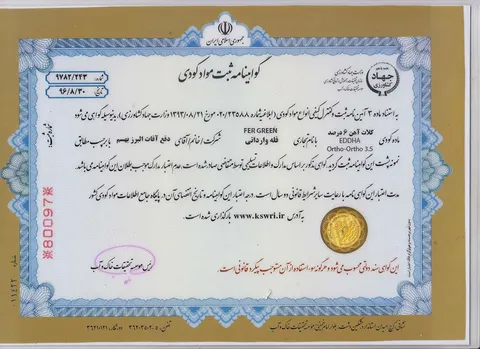 جمهوری اسلامی ایران
گواهینامه ثبت مواد کودی
شماره: ۹۷۸۲/۲۴۳
تاریخ: ۹۶/۸/۳۰
وزارت جهاد کشاورزی
جهاد کشاورزی
به استناد ماده ۳ آئین نامه ثبت و کنترل کیفی انواع مواد کودی (ابلاغیه شماره ۰۲۰/۲۳۵۸۸ مورخ ۱۳۹۳/۰۸/۲۱ وزارت جهاد کشاورزی)، بدینوسیله گواهی می‌شود
ماده کودی کلات آهن ۶ درصد EDDHA Ortho-Ortho 3.5 با نام تجاری FER GREEN فله وارداتی شرکت / خانم / آقای دفع آفات البرز بهسم با برچسب مطابق
نمونه پشت این گواهینامه ثبت گردید. گواهی مذکور بر اساس مدارک و اطلاعات تسلیمی توسط متقاضی صادر شده است. عدم اعتبار مدارک موجب بطلان این گواهینامه می باشد.
مدت اعتبار این گواهی نامه با رعایت سایر شرایط قانونی دو سال است. درجه اعتبار این گواهینامه و تاریخ انقضای آن در پایگاه جامع اطلاعات مواد کودی کشور
به آدرس www.kswri.ir بارگذاری شده است.
رئیس موسسه تحقیقات خاک و آب
این گواهی سند دولتی محسوب می شود و هرگونه سوء استفاده از آن مستوجب پیگرد قانونی است.
※80097※
شماره ۰۱۱۴۲۲